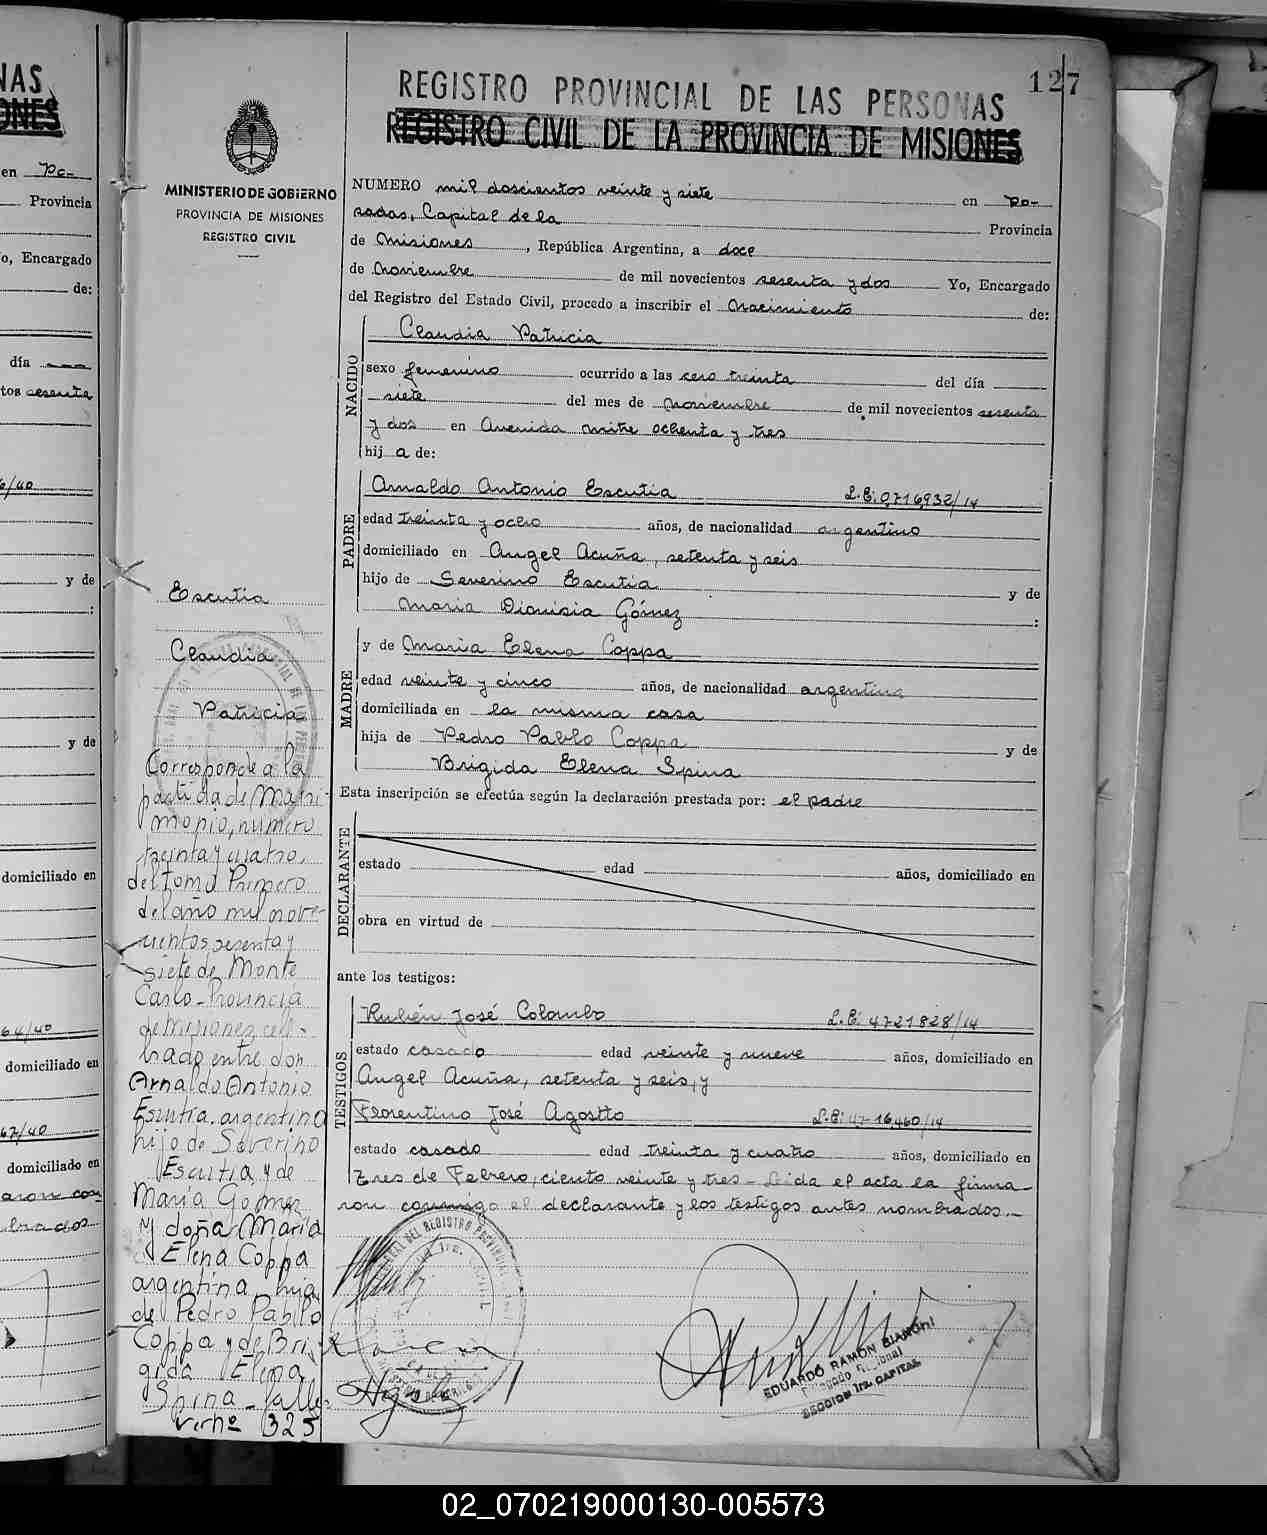 NAS
ONES
en Po-
Provincia
o, Encargado
de:
día
tos sesenta
6/40
y de
:
y de
domiciliado en
64/40
domiciliado en
67/40
domiciliado en
aron con
brados
127
REGISTRO PROVINCIAL DE LAS PERSONAS
REGISTRO CIVIL DE LA PROVINCIA DE MISIONES
MINISTERIO DE GOBIERNO
PROVINCIA DE MISIONES
REGISTRO CIVIL
NUMERO mil doscientos veinte y siete en Po-
sadas, Capital de la Provincia
de Misiones, República Argentina, a doce
de Noviembre de mil novecientos sesenta y dos Yo, Encargado
del Registro del Estado Civil, procedo a inscribir el Nacimiento de:
NACIDO
Claudia Patricia
sexo femenino ocurrido a las cero treinta del día
siete del mes de noviembre de mil novecientos sesenta
y dos en Avenida mitre ochenta y tres
hij a de:
PADRE
Arnaldo Antonio Escutia L.E. 0,716,932/14
edad treinta y ocho años, de nacionalidad argentino
domiciliado en Angel Acuña, setenta y seis
hijo de Severino Escutia y de
Maria Dionisia Gómez :
MADRE
y de Maria Elena Coppa
edad veinte y cinco años, de nacionalidad argentina
domiciliada en la misma casa
hija de Pedro Pablo Coppa y de
Brigida Elena Spina
Esta inscripción se efectúa según la declaración prestada por: el padre
DECLARANTE
estado edad años, domiciliado en
obra en virtud de
ante los testigos:
TESTIGOS
Rubén José Colombo L.E. 4721828/14
estado casado edad veinte y nueve años, domiciliado en
Angel Acuña, setenta y seis, y
Florentino José Agostto L.E. 47-16,460/14
estado casado edad treinta y cuatro años, domiciliado en
Tres de Febrero, ciento veinte y tres - Leida el acta la firma-
ron conmigo el declarante y los testigos antes nombrados.-
Escutia
Claudia
Patricia
Corresponde a la
partida de Matri-
monio, numero
treinta y cuatro,
del tomo Primero
del año mil nove-
cientos sesenta y
siete de Monte
Carlo - Provincia
de Misiones cele-
brado entre don
Arnaldo Antonio
Escutia, argentino
hijo de Severino
Escutia y de
Maria Gomez
y doña Maria
Elena Coppa
argentina hija
de Pedro Pablo
Coppa y de Bri-
gida Elena
Spina
325
EDUARDO RAMON BIANCHI
Delegado Regional
SECCION 1ra. CAPITAL
02_070219000130-005573